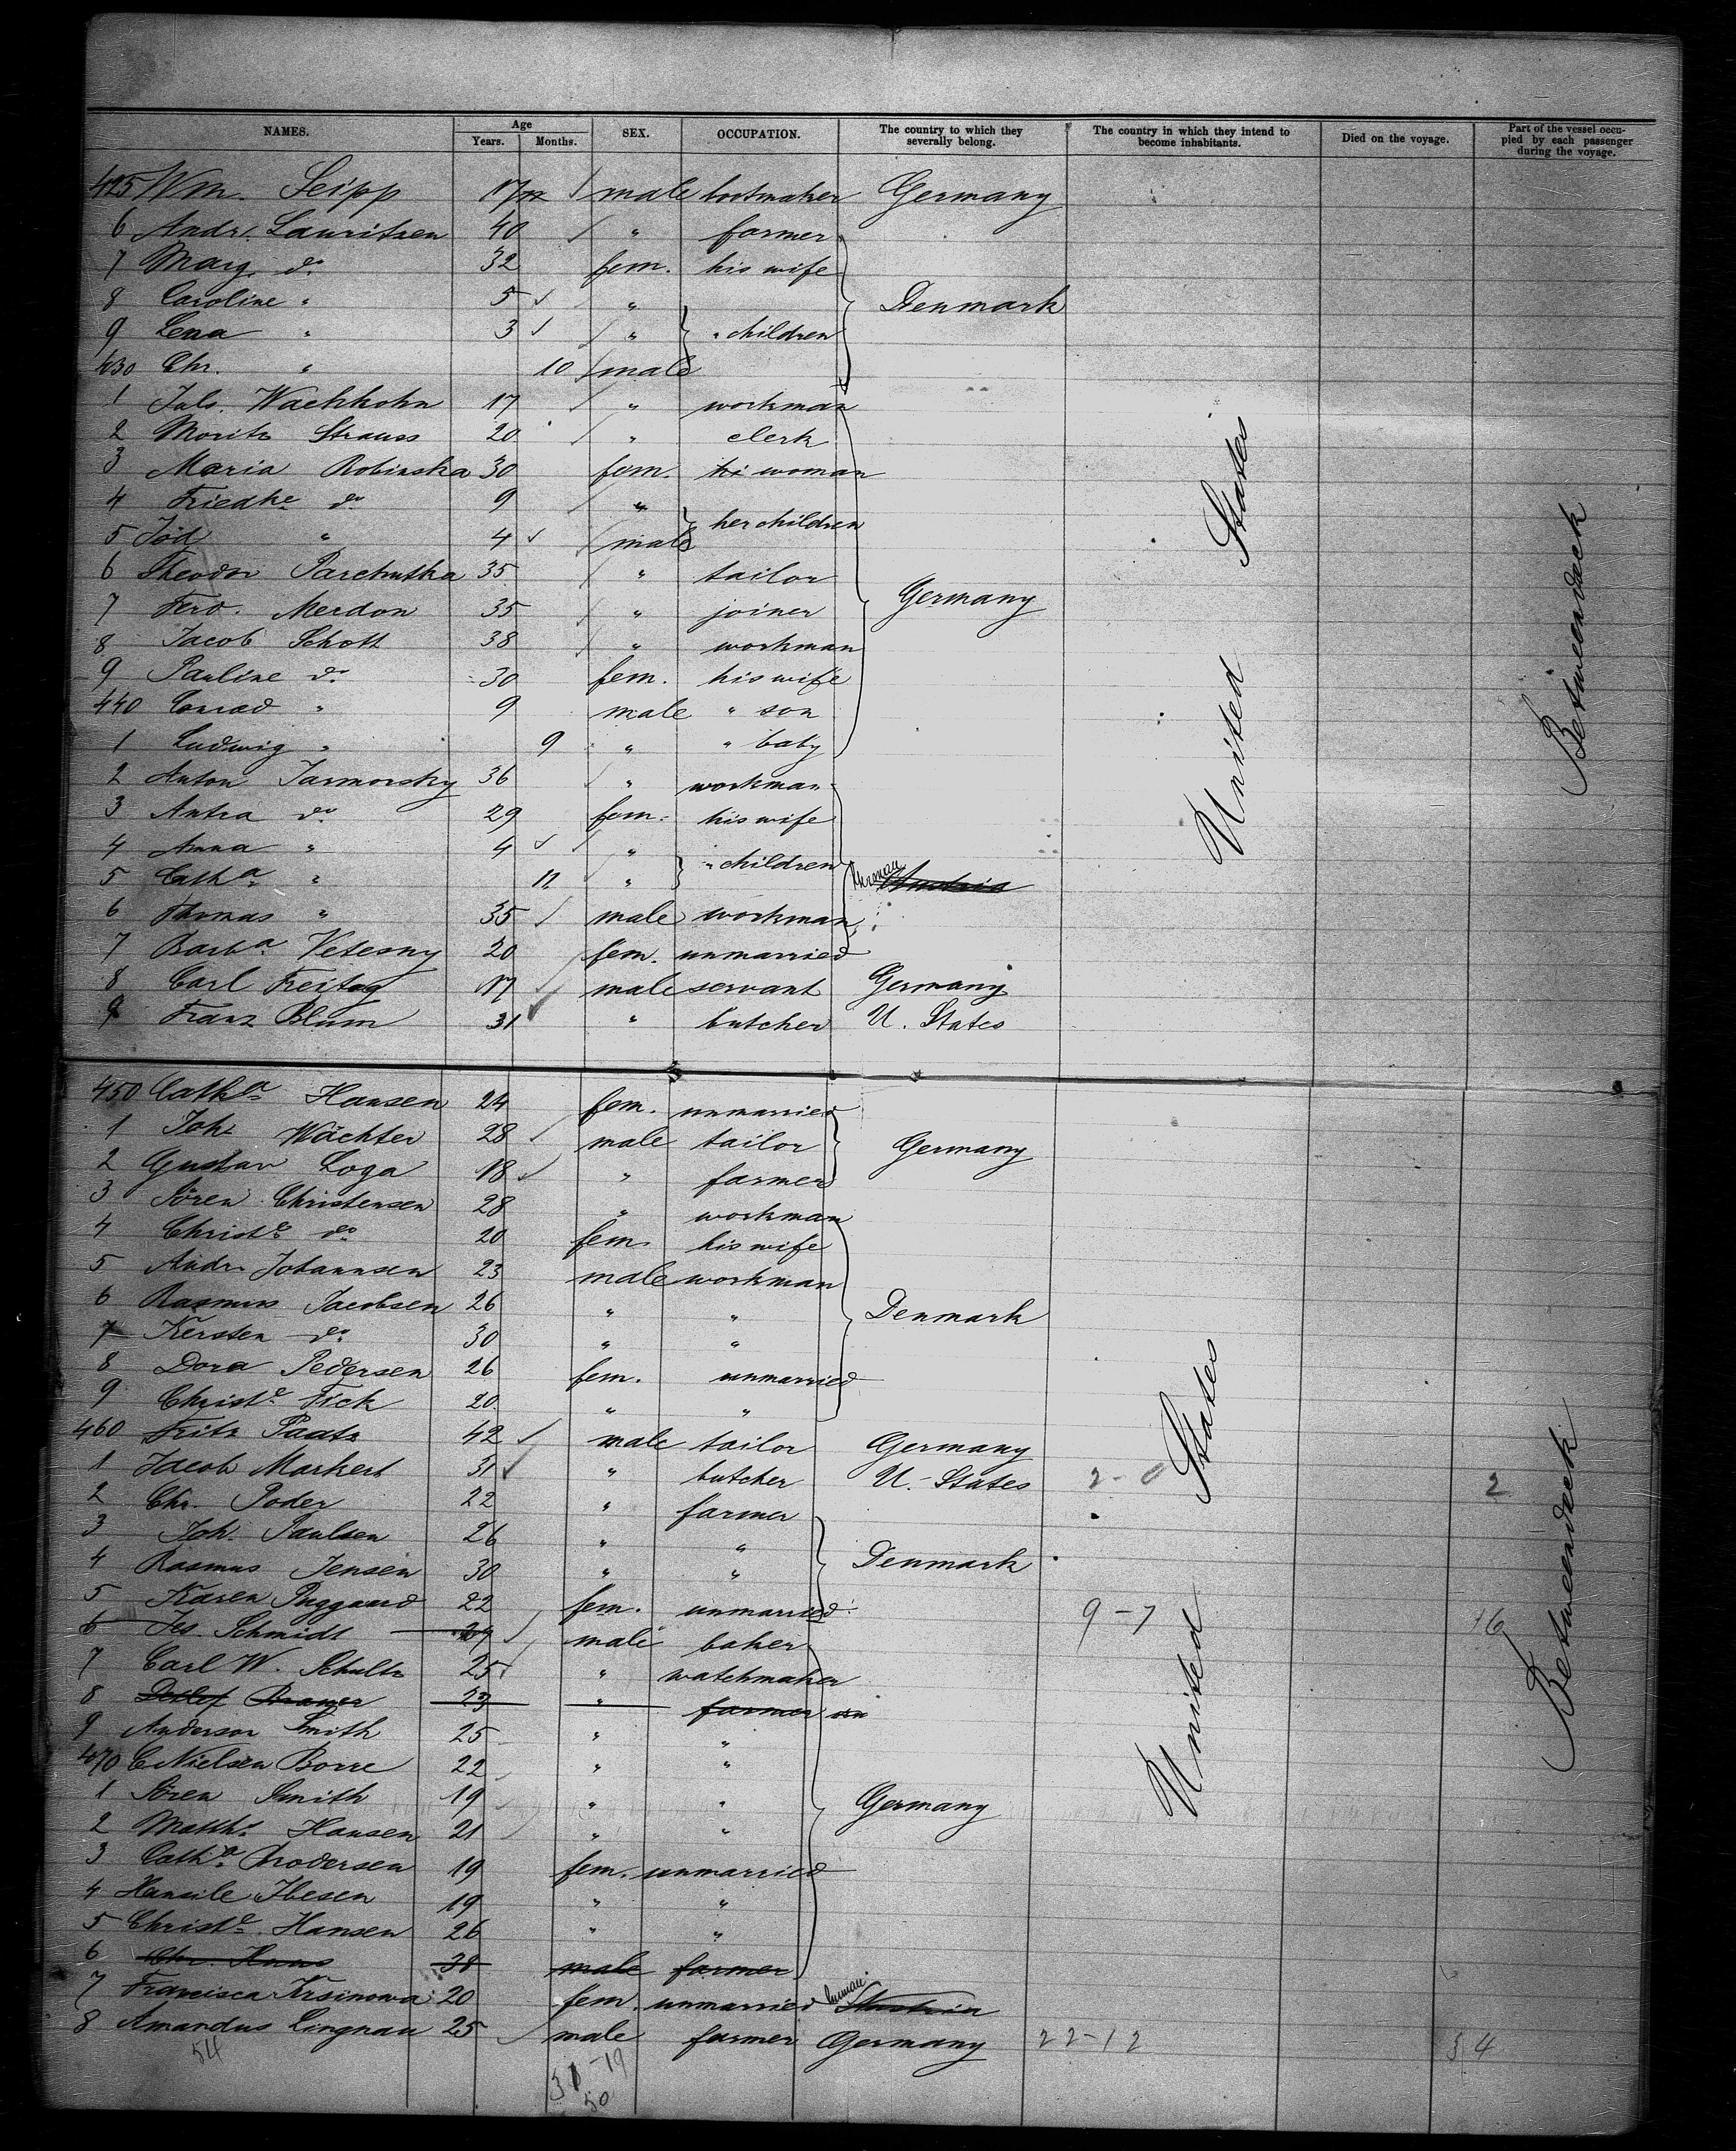 NAMES. Age SEX. OCCUPATION. The country to which they severally belong. The country in which they intend to become inhabitants. Died on the voyage. Part of the vessel occupied by each passenger during the voyage.
Years. Months.
425 Wm. Seipp 17 male bootmaker Germany
6 Andr. Lauritzen 40 " farmer
7 Marg. do 32 fem. his wife
8 Caroline " 5 " Denmark
9 Lena " 3 " " children
430 Chr. " 10 male
1 Jul. Wachhohn 17 " workman
2 Moritz Strauss 20 " clerk
3 Maria Robinska 30 fem. woman
4 Friedke do 9 "
5 " 4 male her children
6 Theodor Parchutka 35 " tailor
7 Ferd. Merdon 35 " joiner Germany
8 Jacob Schott 38 " workman
9 Pauline do 30 fem. his wife
440 Conrad " 9 male " son
1 Ludwig " 9 " " baby
2 Anton Jarmorsky 36 " workman
3 Antra do 29 fem. his wife
4 Anna " 4 "
5 Catha " 11 " " children Austria
6 Thomas " 35 male workman
7 Barba Vetesny 20 fem. unmarried
8 Carl Freitag 17 male servant Germany
9 Franz Blum 31 " butcher U. States
United States
Betweendeck
450 Catha Hansen 24 fem. unmarried
1 Joh. Wächter 28 male tailor Germany
2 Gustav Loga 18 " farmer
3 Sören Christensen 28 " workman
4 Christe do 20 fem. his wife
5 Andr. Johannsen 23 male workman
6 Rasmus Jacobsen 26 " " Denmark
7 Kersten do 30 " "
8 Dora Pedersen 26 fem. unmarried
9 Christe Fick 20 " "
460 Fritz Paatz 42 male tailor Germany
1 Jacob Markert 31 " butcher U. States 2-0 2
2 Chr. Poder 22 " farmer
3 Joh. Paulsen 26 " "
4 Rasmus Jensen 30 " " Denmark
5 Karen Puggaard 22 fem. unmarried 9-7 16
6 Jes. Schmidt 29 male baker
7 Carl W. Schultz 25 " watchmaker
8 Detlef Bramer 23 " farmer
9 Anderson Smith 25 " "
470 C Nielsen Borre 22 " "
1 Sören Smith 19 " " Germany
2 Matths Hansen 21 " "
3 Catha Brodersen 19 fem. unmarried
4 Hansile Ibesen 19 " "
5 Christe Hansen 26 " "
6 Chr. Haas 38 male farmer
7 Francisca Krsinowa 20 fem. unmarried Austria
8 Amandus Lingnau 25 male farmer Germany 22-12 34
United States
Betweendeck
54 31-19
50